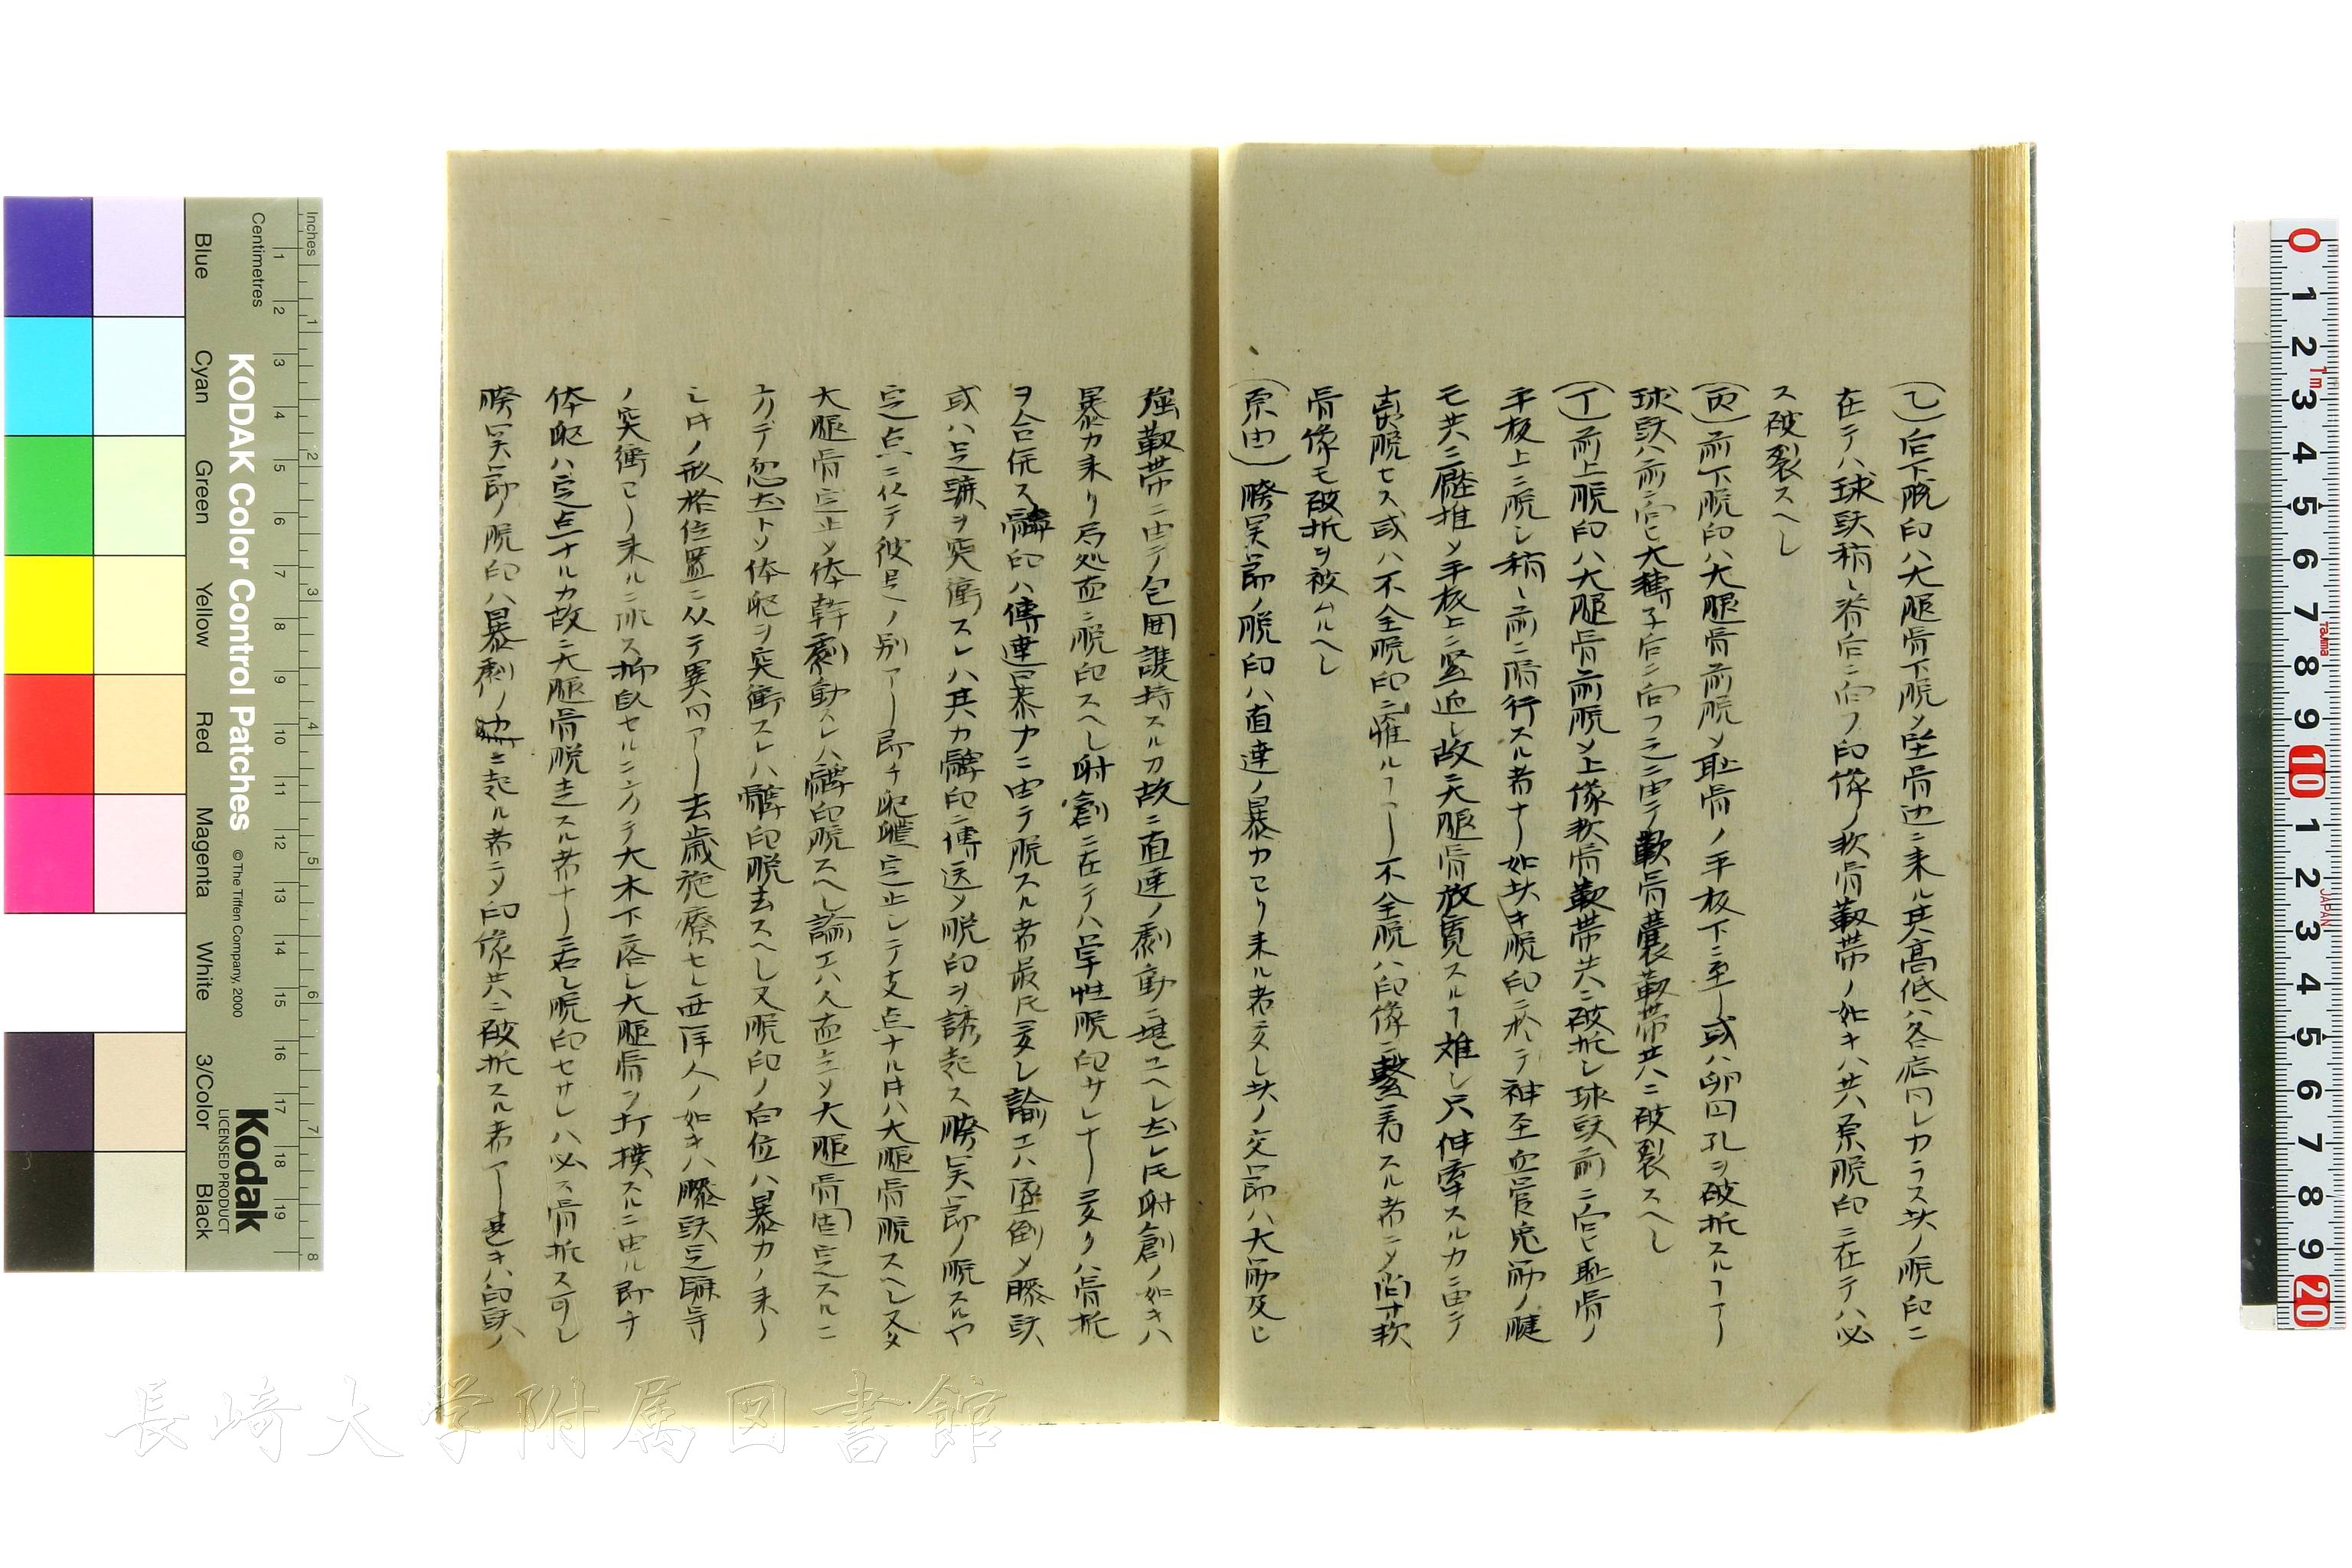 (乙)后下脱臼ハ大腿骨下脱乄坐骨辺ニ来ル其高低ハ各店同シカラス玆ノ脱臼ニ
在テハ球頭稍〻脊后ニ向フ臼像ノ軟骨靱帯ノ如キハ共原脱臼ニ在テハ必
ス破裂スヘし
(丙)前下脱臼ハ大腿骨前脱乄恥骨ノ平板下ニ至リ或ハ卵円孔ヲ破折スルヿアリ
球頭ハ前ニ向ヒ大轉子后ニ向フ之ニ由テ軟骨嚢靱帯共ニ破裂スヘし
(丁)前上脱臼ハ大腿骨前脱乄上像軟骨靱帯共ニ破折し球頭前ニ向ヒ恥骨ノ
平板上ニ脱し稍〻前ニ隋行スル者ナリ如玆キ脱臼ニ於テ神至血管兎筋ノ腱
モ共ニ壓推乄平板上ニ竪迫し故ニ大腿骨放寛スルヿ難し只伸牽スルカニ由テ
真脱セス或ハ不全脱臼ニ罹ルヿアリ不全脱ハ臼像ニ繋着スル者ニ乄尚ホ軟
骨像モ破折ヲ被ムルヘし
(原由)髈関節ノ脱臼ハ直達ノ暴力ヨリ来ル者尠シ玆ノ交節ハ大筋及ヒ
強靱帯ニ由テ包囲護持スルカ故ニ直達ノ劇動ニ堪ユヘし然レ𪜈射創ノ如キハ
暴力来リ局処直ニ脱臼スヘし射創ニ在テハ単性脱臼サレナリ多クハ骨折
ヲ合併ス髀臼ハ傳達暴力ニ由テ脱スル者最𪜈多し諭エハ墜倒乄膝頭
或ハ足蹠ヲ突衝スレハ其カ髀臼ニ傳送乄脱臼ヲ誘起ス髈関節ノ脱スルヤ
定点ニ仍テ彼是ノ別アリ即チ軀軆定止シテ支点ナル𪜈ハ大腿骨脱スヘし又
大腿骨定止乄体幹劇動スレハ髀臼脱スヘし諭エハ人直立乄大腿骨固定スルニ
方テ忽然ト乄体軀ヲ突衝スレハ髀臼脱去スヘし又脱臼ノ向位ハ暴力ノ来リ
シ𪜈ノ形格位置ニ从テ異同アリ去歳施療セし西洋人ノ如キハ膝頭足蹠等
ノ突衝ヨリ来ルニ非ス抑臥セルニ方テ大木下落し大腿骨ヲ打撲スルニ由ル即チ
体軀ハ定点ナルカ故ニ大腿骨脱走スル者ナリ若し脱臼セサレハ必ス骨折ス可し
髈関節ノ脱臼ハ暴劇ノ力ニ起ル者ニ乄臼像共ニ破折スル者アリ甚キハ臼頭ノ